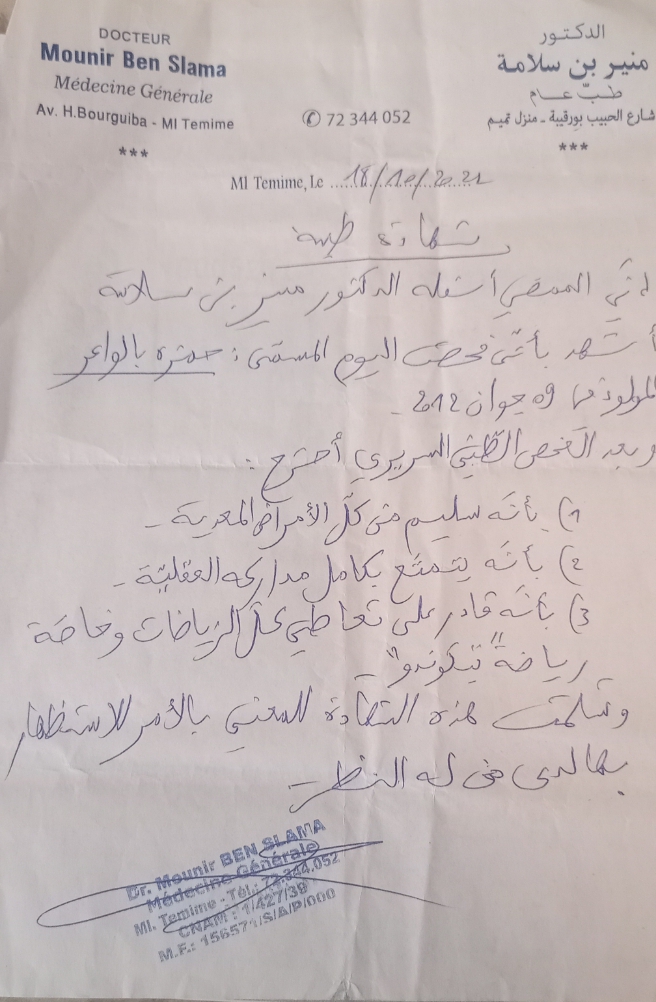 DOCTEUR
Mounir Ben Slama
Médecine Générale
Av. H.Bourguiba - Ml Temime
***
✆ 72 344 052
الدكتور
منير بن سلامة
طب عام
شارع الحبيب بورقيبة - منزل تميم
***
Ml Temime, Le 18/10/2021
شهادة طبية
إنّي الممضي أسفله الدكتور منير بن سلامة
أشهد بأنّي فحصت اليوم المسمّى : حمزة بالواعر
المولود في 09 جوان 2012 -
و بعد الفحص الطّبّي السريري أصرّح :
1) بأنّه سليم من كلّ الأمراض المعدية -
2) بأنّه يتمتّع بكامل مداركه العقليّة -
3) بأنّه قادر على تعاطي كلّ الرّياضات وخاصّة
رياضة "تيكوندو" -
وسلّمت هذه الشهادة للمعني بالأمر للاستظهار
بها لدى من له النظر
Dr. Mounir BEN SLAMA
Médecine Générale
Ml. Temime - Tél.: 72.344.052
CNAM : 1/427/39
M.F.: 156571/S/A/P/000